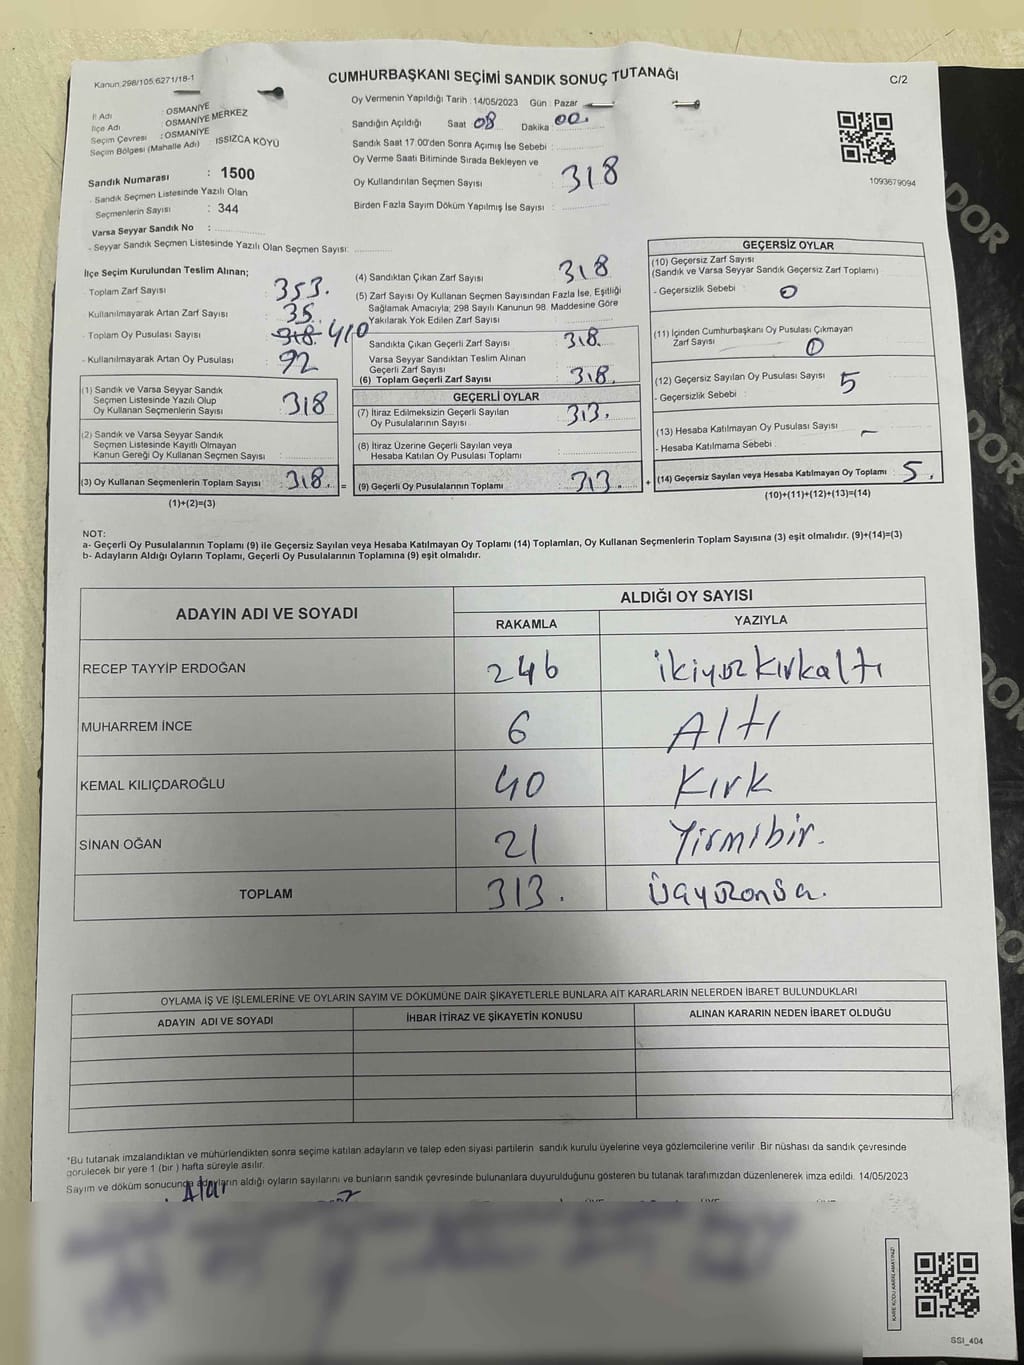 Kanun 298/105,6271/18-1
CUMHURBAŞKANI SEÇİMİ SANDIK SONUÇ TUTANAĞI
C/2
İl Adı : OSMANİYE
İlçe Adı : OSMANİYE MERKEZ
Seçim Çevresi : OSMANİYE
Seçim Bölgesi (Mahalle Adı) ISSIZCA KÖYÜ
Sandık Numarası : 1500
- Sandık Seçmen Listesinde Yazılı Olan
Seçmenlerin Sayısı : 344
Varsa Seyyar Sandık No :
- Seyyar Sandık Seçmen Listesinde Yazılı Olan Seçmen Sayısı:
Oy Vermenin Yapıldığı Tarih :14/05/2023 Gün Pazar
Sandığın Açıldığı Saat 08 Dakika 00.
Sandık Saat 17.00'den Sonra Açımış İse Sebebi :
Oy Verme Saati Bitiminde Sırada Bekleyen ve
Oy Kullandırılan Seçmen Sayısı : 318
Birden Fazla Sayım Döküm Yapılmış İse Sayısı :
1093679094
İlçe Seçim Kurulundan Teslim Alınan;
- Toplam Zarf Sayısı : 353.
- Kullanılmayarak Artan Zarf Sayısı : 35.
- Toplam Oy Pusulası Sayısı : 318. 410
- Kullanılmayarak Artan Oy Pusulası : 92
(1) Sandık ve Varsa Seyyar Sandık
Seçmen Listesinde Yazılı Olup
Oy Kullanan Seçmenlerin Sayısı : 318
(2) Sandık ve Varsa Seyyar Sandık
Seçmen Listesinde Kayıtlı Olmayan
Kanun Gereği Oy Kullanan Seçmen Sayısı :
(3) Oy Kullanan Seçmenlerin Toplam Sayısı : 318. =
(1)+(2)=(3)
(4) Sandıktan Çıkan Zarf Sayısı : 318
(5) Zarf Sayısı Oy Kullanan Seçmen Sayısından Fazla İse, Eşitliği
Sağlamak Amacıyla; 298 Sayılı Kanunun 98. Maddesine Göre
Yakılarak Yok Edilen Zarf Sayısı :
Sandıkta Çıkan Geçerli Zarf Sayısı : 318.
Varsa Seyyar Sandıktan Teslim Alınan
Geçerli Zarf Sayısı :
(6) Toplam Geçerli Zarf Sayısı : 318.
GEÇERLİ OYLAR
(7) İtiraz Edilmeksizin Geçerli Sayılan
Oy Pusulalarının Sayısı : 313.
(8) İtiraz Üzerine Geçerli Sayılan veya
Hesaba Katılan Oy Pusulası Toplamı :
(9) Geçerli Oy Pusulalarının Toplamı : 313. +
GEÇERSİZ OYLAR
(10) Geçersiz Zarf Sayısı
(Sandık ve Varsa Seyyar Sandık Geçersiz Zarf Toplamı)
- Geçersizlik Sebebi : 0
(11) İçinden Cumhurbaşkanı Oy Pusulası Çıkmayan
Zarf Sayısı : 0
(12) Geçersiz Sayılan Oy Pusulası Sayısı : 5
- Geçersizlik Sebebi :
(13) Hesaba Katılmayan Oy Pusulası Sayısı : -
- Hesaba Katılmama Sebebi :
(14) Geçersiz Sayılan veya Hesaba Katılmayan Oy Toplamı : 5.
(10)+(11)+(12)+(13)=(14)
NOT:
a- Geçerli Oy Pusulalarının Toplamı (9) ile Geçersiz Sayılan veya Hesaba Katılmayan Oy Toplamı (14) Toplamları, Oy Kullanan Seçmenlerin Toplam Sayısına (3) eşit olmalıdır. (9)+(14)=(3)
b- Adayların Aldığı Oyların Toplamı, Geçerli Oy Pusulalarının Toplamına (9) eşit olmalıdır.
ADAYIN ADI VE SOYADI ALDIĞI OY SAYISI
RAKAMLA YAZIYLA
RECEP TAYYİP ERDOĞAN 246 ikiyüzkırkaltı
MUHARREM İNCE 6 Altı
KEMAL KILIÇDAROĞLU 40 Kırk
SİNAN OĞAN 21 Yirmibir.
TOPLAM 313. üçyüzonüç.
OYLAMA İŞ VE İŞLEMLERİNE VE OYLARIN SAYIM VE DÖKÜMÜNE DAİR ŞİKAYETLERLE BUNLARA AİT KARARLARIN NELERDEN İBARET BULUNDUKLARI
ADAYIN ADI VE SOYADI İHBAR İTİRAZ VE ŞİKAYETİN KONUSU ALINAN KARARIN NEDEN İBARET OLDUĞU
*Bu tutanak imzalandıktan ve mühürlendikten sonra seçime katılan adayların ve talep eden siyasi partilerin sandık kurulu üyelerine veya gözlemcilerine verilir. Bir nüshası da sandık çevresinde
görülecek bir yere 1 (bir ) hafta süreyle asılır.
Sayım ve döküm sonucunda adayların aldığı oyların sayılarını ve bunların sandık çevresinde bulunanlara duyurulduğunu gösteren bu tutanak tarafımızdan düzenlenerek imza edildi. 14/05/2023
KARE KODU KARALAMAYINIZ!
SSI_404